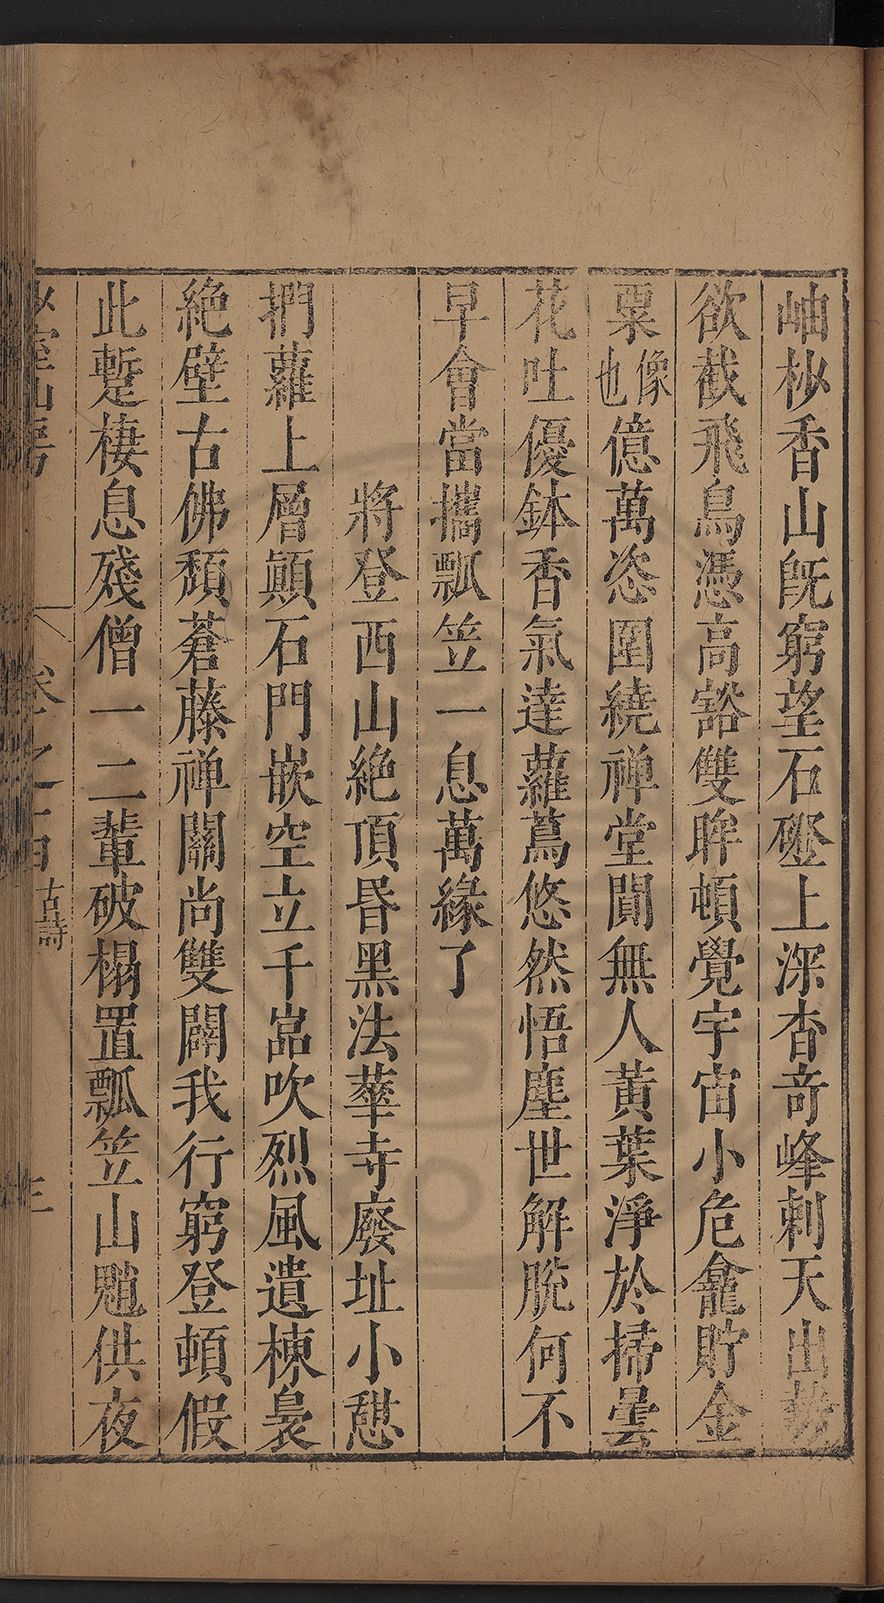 岫杪香山旣窮望石磴上深杳竒峰刺天出勢
欲截飛鳥憑高豁雙眸頓覺宇宙小危龕貯金
粟像也億萬恣圍繞禅堂閴無人黃葉淨於掃曇
花吐優鉢香氣達蘿蔦悠然悟塵世解脫何不
早會當攜瓢笠一息萬緣了
將登西山絶頂昬黑法華寺廢址小憇
捫蘿上層顛石門嵌空立千嵓吹烈風遺棟裊
絶壁古佛頽蒼藤禅關尚雙闢我行窮登頓假
此蹔棲息殘僧一二輩破榻置瓢笠山魈供夜
山房
卷之
古詩